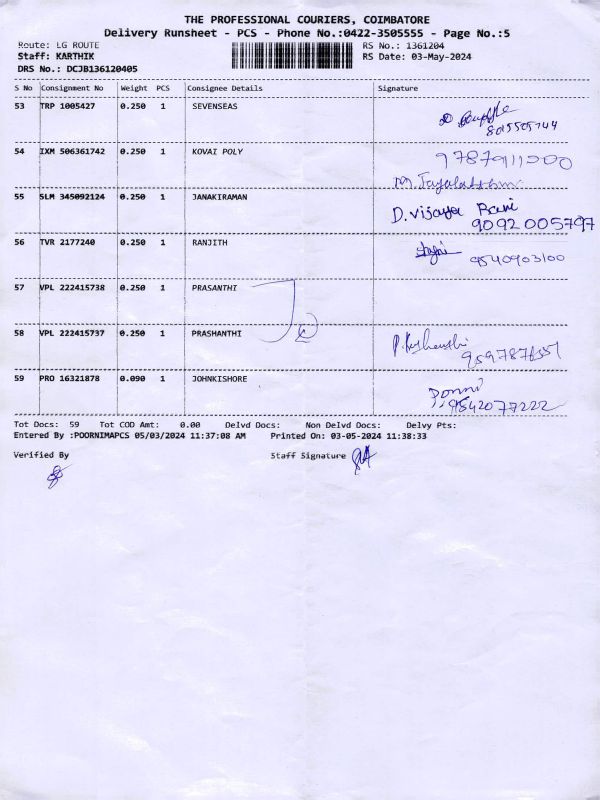 THE PROFESSIONAL COURIERS, COIMBATORE
Delivery Runsheet - PCS - Phone No.:0422-3505555 - Page No.:5
Route: LG ROUTE RS No.: 1361204
Staff: KARTHIK RS Date: 03-May-2024
DRS No.: DCJB136120405
S No Consignment No Weight PCS Consignee Details Signature
53 TRP 1005427 0.250 1 SEVENSEAS
54 IXM 506361742 0.250 1 KOVAI POLY
M. Jayalakshmi
55 SLM 345092124 0.250 1 JANAKIRAMAN D. vijaya Rani
9092005797
56 TVR 2177240 0.250 1 RANJITH 9540903100
57 VPL 222415738 0.250 1 PRASANTHI
58 VPL 222415737 0.250 1 PRASHANTHI
59 PRO 16321878 0.090 1 JOHNKISHORE
9542077222
Tot Docs: 59 Tot COD Amt: 0.00 Delvd Docs: Non Delvd Docs: Delvy Pts:
Entered By :POORNIMAPCS 05/03/2024 11:37:08 AM Printed On: 03-05-2024 11:38:33
Verified By Staff Signature